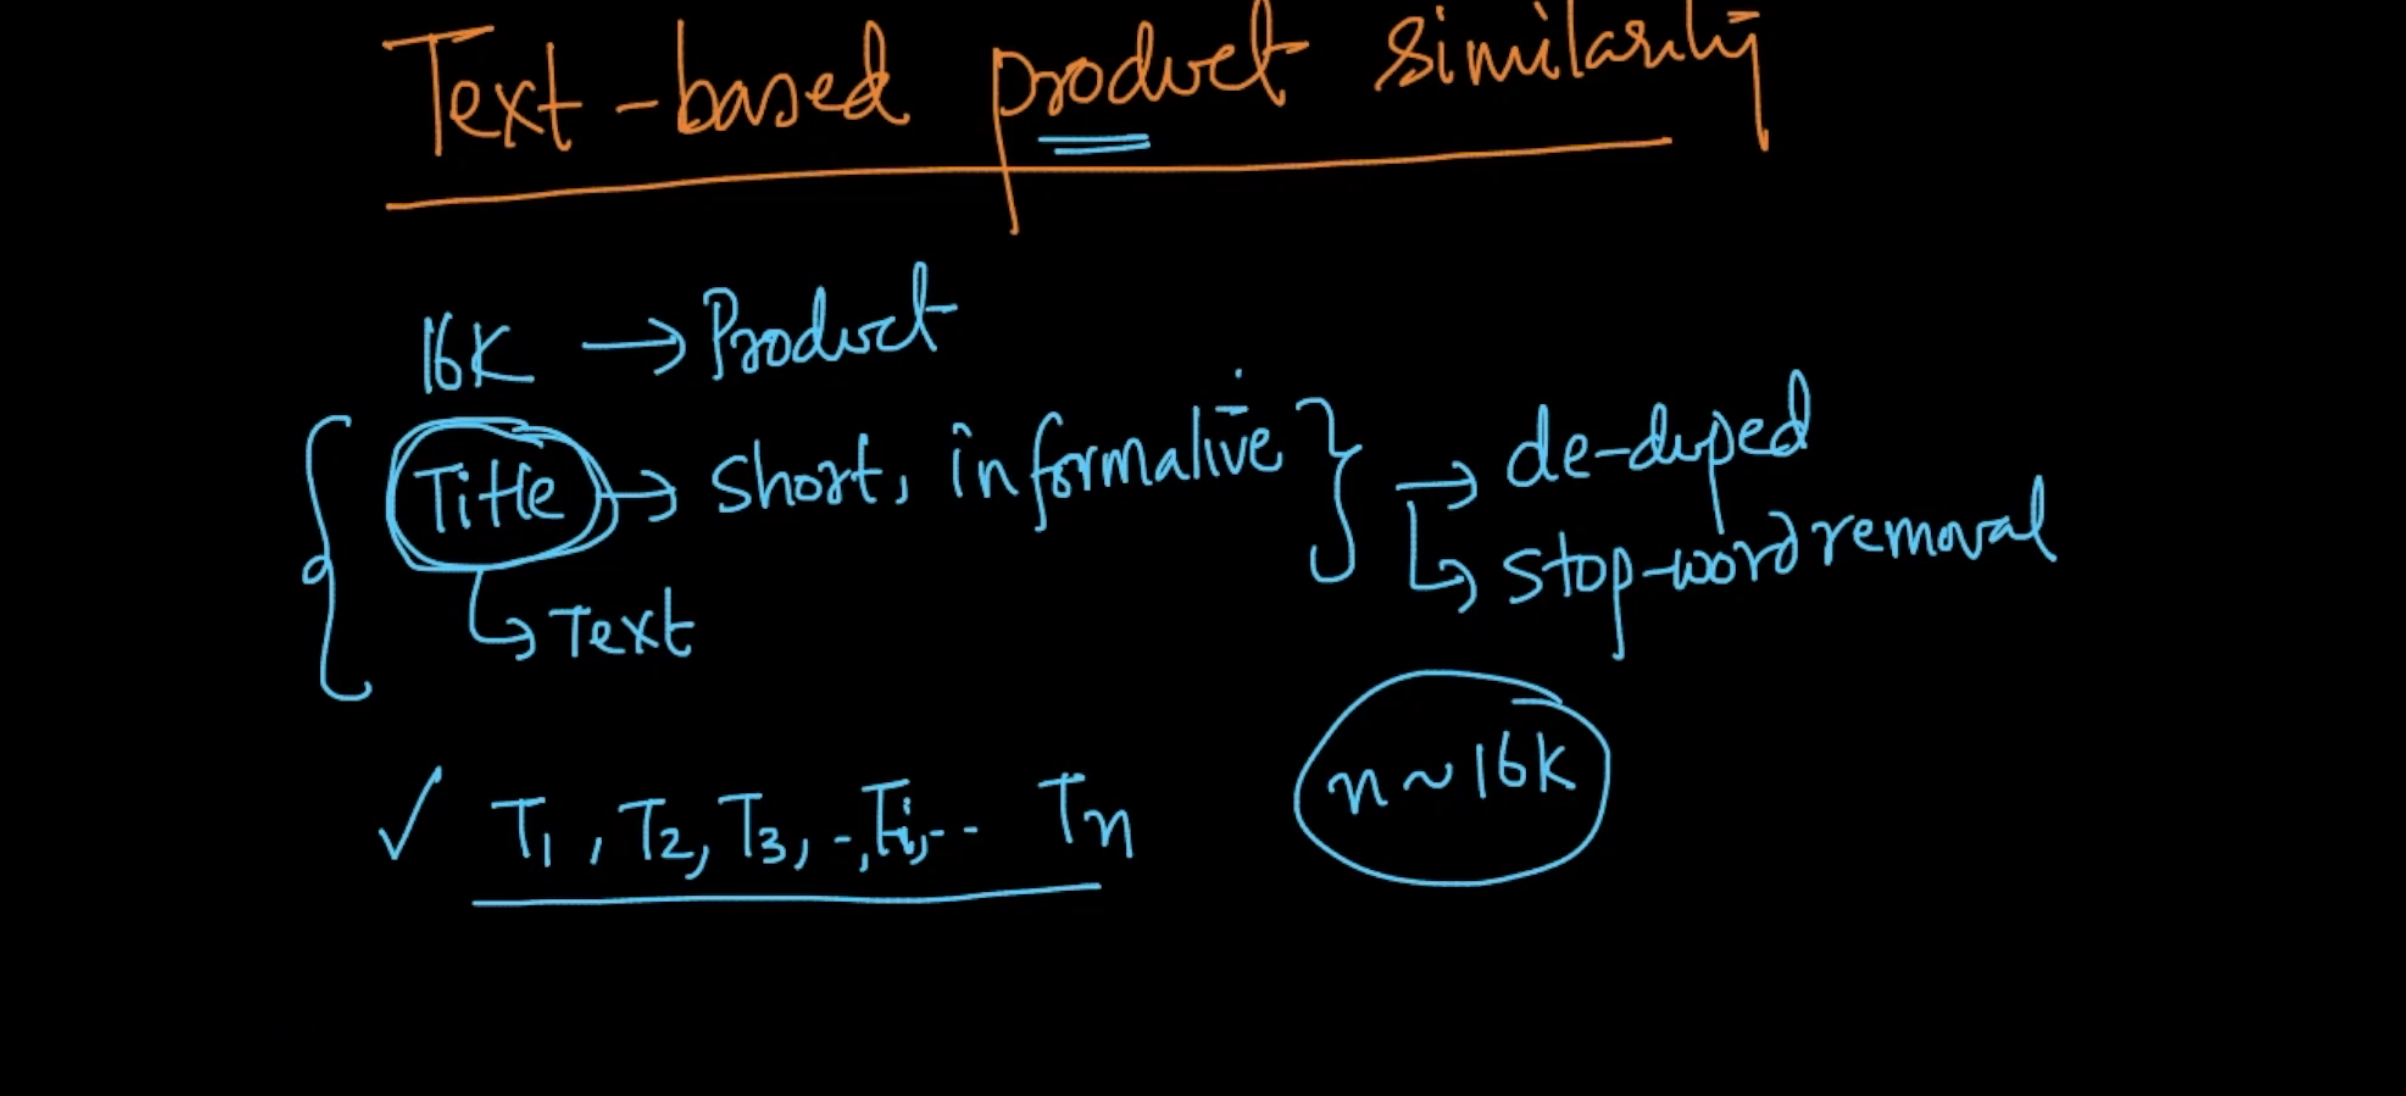 Text-based product similarity
16K → Product
Title → short, informative } → de-duped
↳ stop-word removal
↳ Text
n ~ 16K
✓ T1, T2, T3, --, Ti, -- Tn